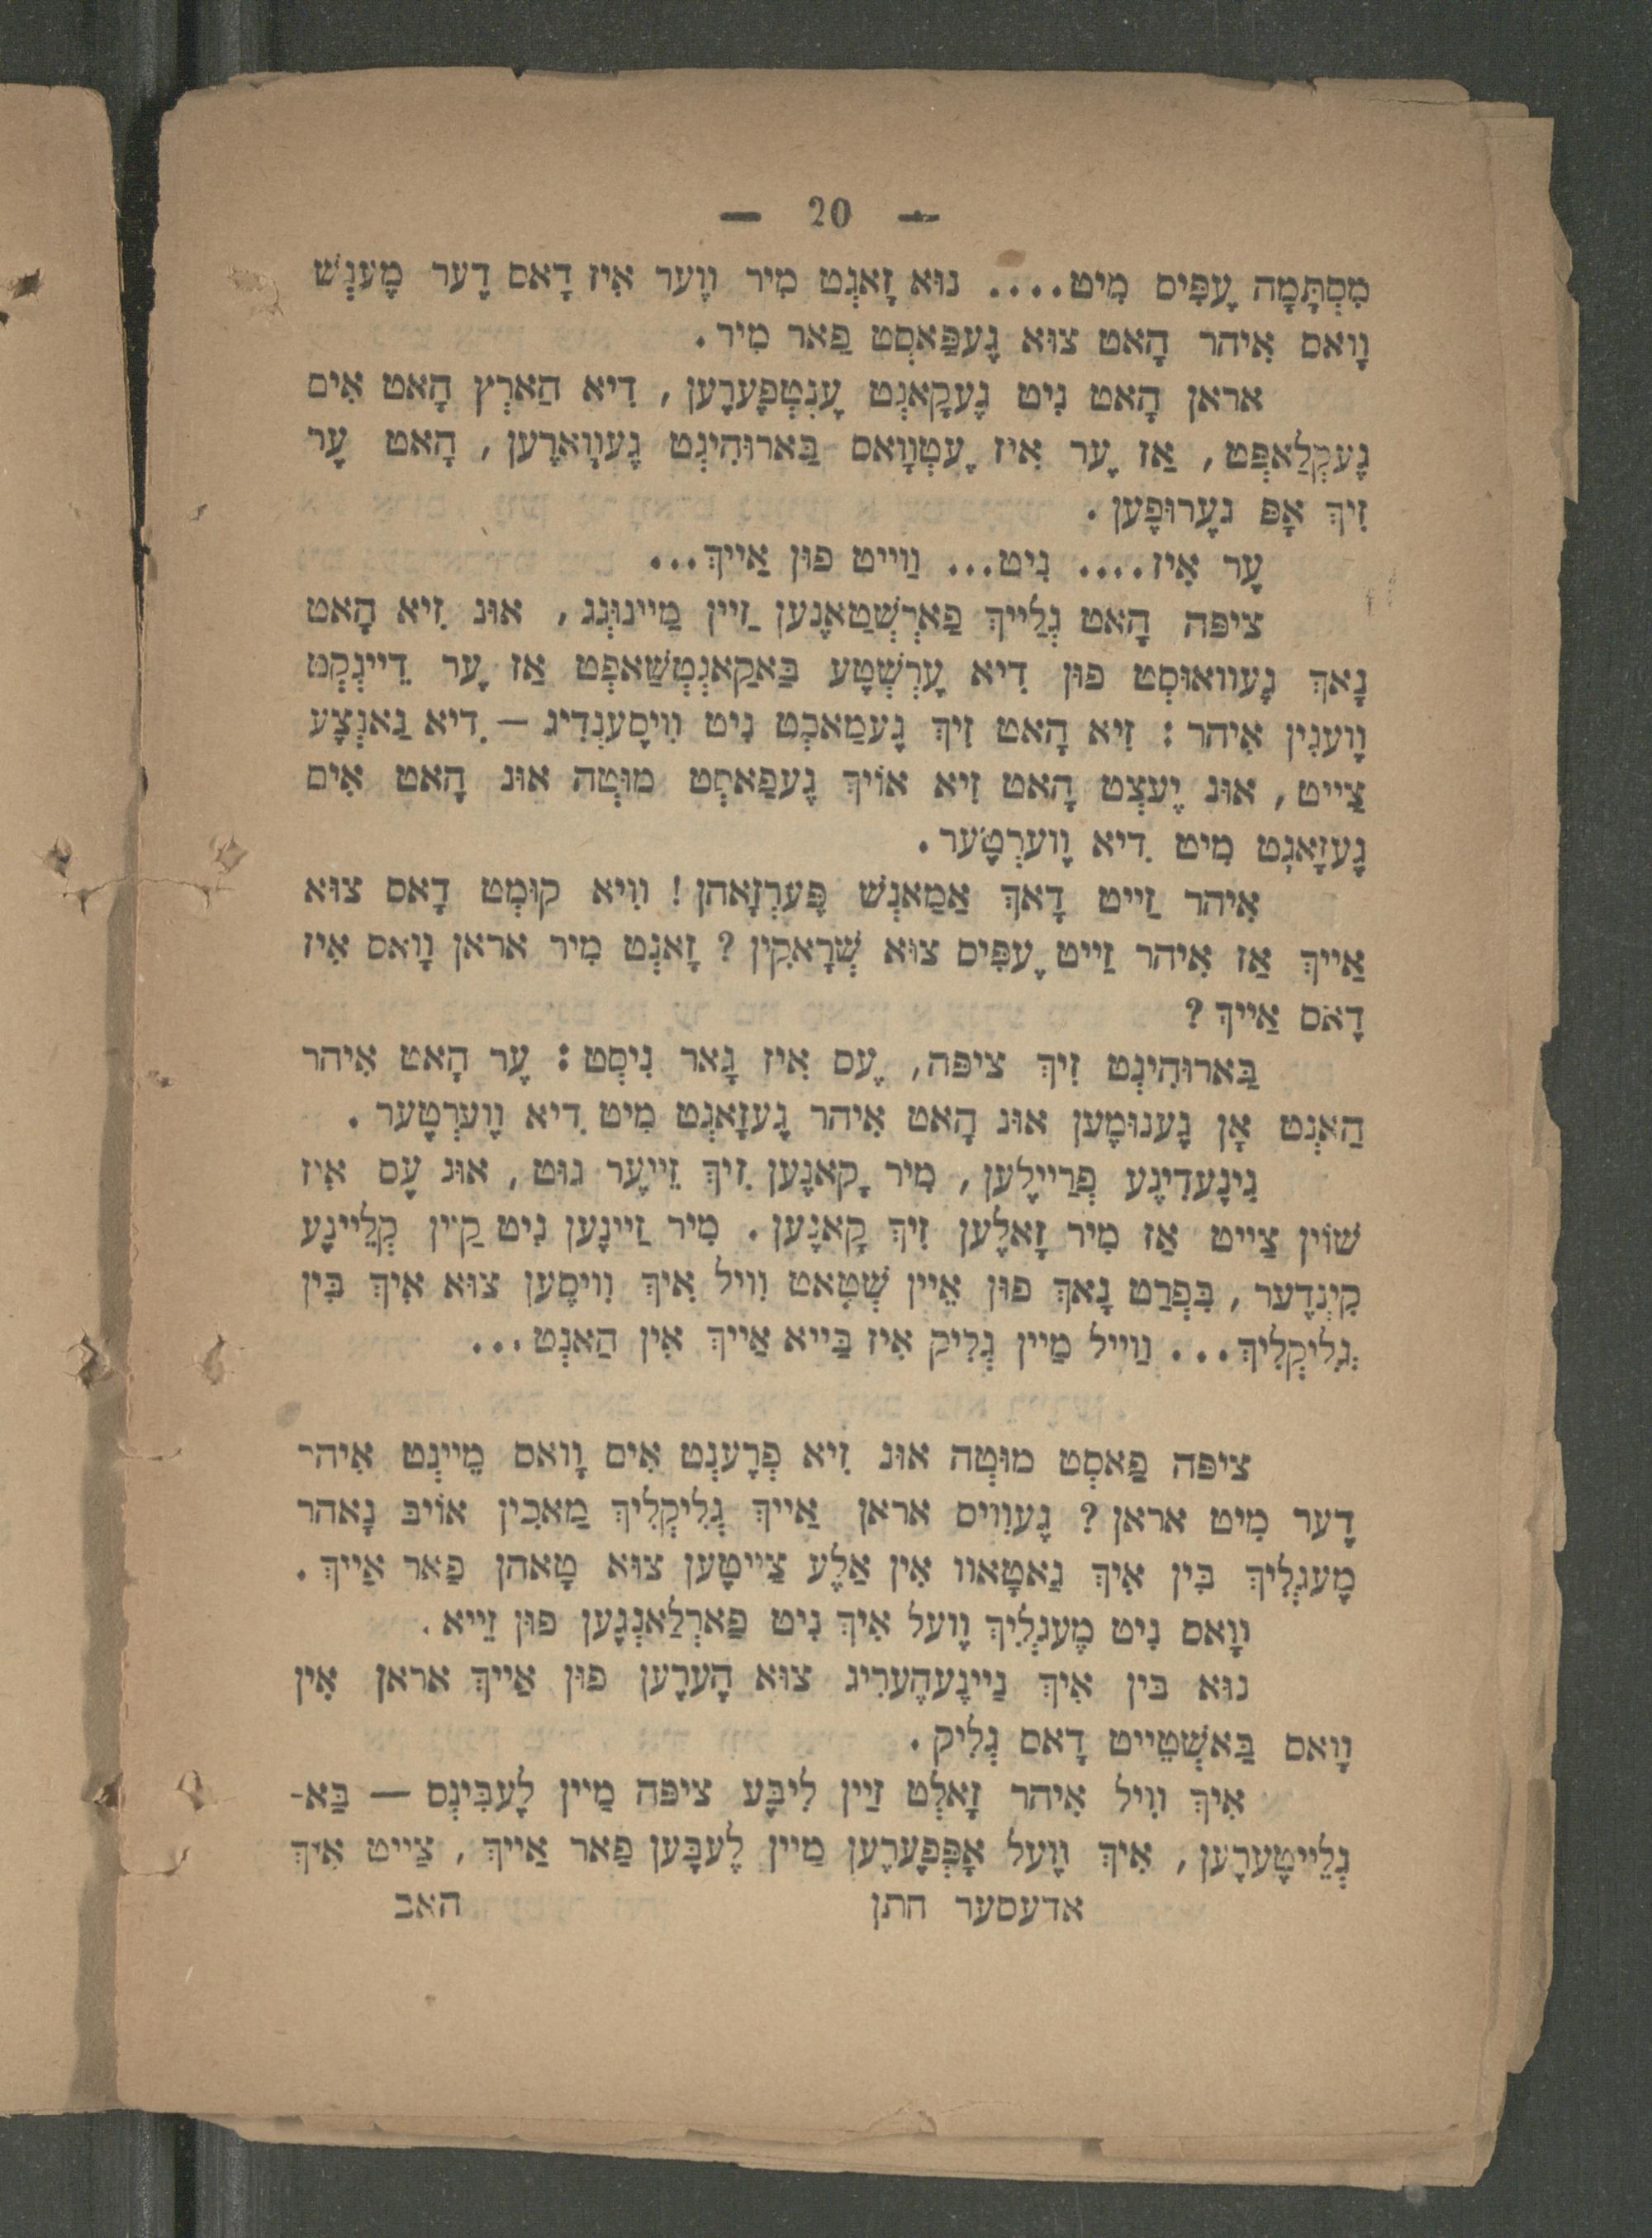 — 20 —
מִסְתָּמָה עָפִּיס מִיט.... נוּא זָאגְט מִיר ווָער אִיז דָאס דָער מָענְשׁ
וָואס אִיהר הָאט צוּא גָעפַּאסְט פַאר מִיר.
אראן הָאט נִיט גָעקָאנְט עָנְטְפָערָען, דִיא הַארְץ הָאט אִים
גָעקְלַאפְּט, אַז עָר אִיז עָטְוָואס בַּארוּהִיגְט גָעוָוארָען, הָאט עָר
זִיךְ אָפּ גֶערוּפָען.
עָר אִיז.... נִיט... וַוייט פוּן אַייךְ...
ציפּה הָאט גְלַייךְ פַארְשְׁטַאנֶען זַיין מַיינוּנְג, אוּנ זִיא הָאט
נָאךְ גָעוואוּסְט פוּן דִיא עָרְשְׁטָע בַּאקַאנְטְשַׁאפְט אַז עָר דֵיינְקְט
וָועגִין אִיהר: זִיא הָאט זִיךְ גָעמַאכְט נִיט ווִיסָענְדִיג — דִיא גַאנְצָע
צַייט, אוּנ יֶעצְט הָאט זִיא אוֹיךְ גֶעפַאסְט מוּטְה אוּנ הָאט אִים
גָעזָאגְט מִיט דִיא וָוערְטָער.
אִיהר זַייט דָאךְ אַמַאנְשׁ פֶּערְזָאהן! ווִיא קוּמְט דָאס צוּא
אַייךְ אַז אִיהר זַייט עָפִּיס צוּא שְׁרָאקִין? זָאגְט מִיר אראן וָואס אִיז
דָאס אַייךְ?
בַּארוּהִיגְט זִיךְ ציפּה, עֶס אִיז גָאר נִיסְט: עֶר הָאט אִיהר
הַאנְט אָן גָענוּמָען אוּנ הָאט אִיהר גָעזָאגְט מִיט דִיא וָוערְטָער.
גִינָעדִיגֶע פְרַיילָען, מִיר קָאנֶען זִיךְ זֵייעֶר גוּט, אוּנ עָס אִיז
שׁוֹין צַייט אַז מִיר זָאלֶען זִיךְ קָאנֶען. מִיר זַיינָען נִיט קַיין קְלֵיינָע
קִינְדֶער, בִּפְרַט נָאךְ פוּן אֵיין שְׁטָאט ווִיל אִיךְ ווִיסֶען צוּא אִיךְ בִּין
גְלִיקְלִיךְ... וַוייל מַיין גְלִיק אִיז בַּייא אַייךְ אִין הַאנְט...
ציפּה פַאסְט מוּטְה אוּנ זִיא פְרָעגְט אִים וָואס מֵיינְט אִיהר
דָער מִיט אראן? גָעווִיס אראן אַייךְ גְלִיקְלִיךְ מַאכִין אוֹיבּ נָאהר
מָעגְלִיךְ בִּין אִיךְ גַאטָאוו אִין אַלֶע צַייטָען צוּא טָאהן פַאר אַייךְ.
ווָאס נִיט מֶעגְלִיךְ וָועל אִיךְ נִיט פַארְלַאנְגָען פוּן זֵייא.
נוּא בּין אִיךְ נַייגֶעהֶערִיג צוּא הָערָען פוּן אַייךְ אראן אִין
וָואס בַּאשְׁטֵייט דָאס גְלִיק.
אִיךְ ווִיל אִיהר זָאלְט זַיין לִיבָּע ציפּה מַיין לָעבִּינְס — בַּא-
גְלֵייטָערָען, אִיךְ וָועל אָפְּפָערֶען מַיין לֶעבָּען פַאר אַייךְ, צַייט אִיךְ
אדעסער חתן האב